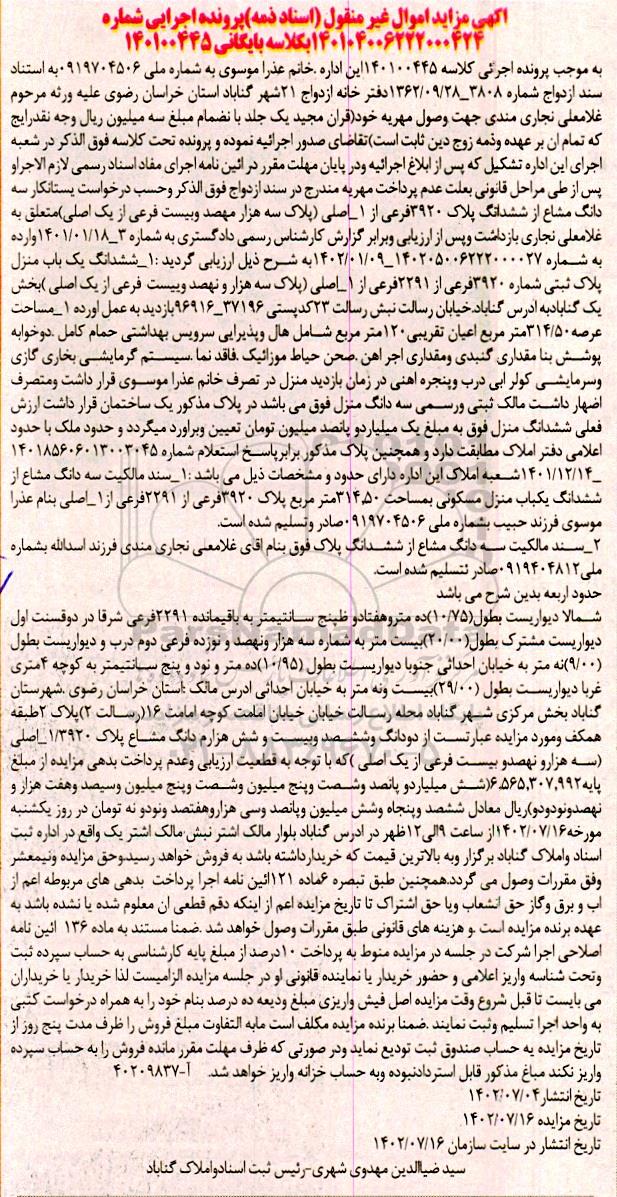 اکهی مزاید اموال غیر منقول (اسناد ذمه)پرونده اجرایی شماره
۱۴۰۱۰۴۰۰۶۲۲۲۰۰۰۴۲۴بکلاسه بایگانی ۱۴۰۱۰۰۴۴۵
به موجب پرونده اجرئی کلاسه ۱۴۰۱۰۰۴۴۵این اداره .خانم عذرا موسوی به شماره ملی ۰۹۱۹۷۰۴۵۰۶به استناد
سند ازدواج شماره ۳۸۰۸_۱۳۶۲/۰۹/۲۸دفتر خانه ازدواج ۲۱شهر گناباد استان خراسان رضوی علیه ورثه مرحوم
غلامعلی نجاری مندی جهت وصول مهریه خود(قران مجید یک جلد با نضمام مبلغ سه میلیون ریال وجه نقدرایج
که تمام ان بر عهده وذمه زوج دین ثابت است)تقاضای صدور اجرائیه نموده و پرونده تحت کلاسه فوق الذکر در شعبه
اجرای این اداره تشکیل که پس از ابلاغ اجرائیه ودر پایان مهلت مقرر در ائین نامه اجرای مفاد اسناد رسمی لازم الاجراو
پس از طی مراحل قانونی بعلت عدم پرداخت مهریه مندرج در سند ازدواج فوق الذکر وحسب درخواست یستانکار سه
دانگ مشاع از ششدانگ پلاک ۳۹۲۰فرعی از ۱_اصلی (پلاک سه هزار مهصد وبیست فرعی از یک اصلی)متعلق به
غلامعلی نجاری بازداشت وپس از ارزیابی وبرابر گزارش کارشناس رسمی دادگستری به شماره ۳_۱۴۰۱/۰۱/۱۸وارده
به شماره ۱۴۰۲۰۵۰۰۶۲۲۲۰۰۰۰۲۷_۱۴۰۲/۰۱/۰۹به شرح ذیل ارزیابی گردید :۱_ششدانگ یک باب منزل
پلاک ثبتی شماره ۳۹۲۰فرعی از ۲۲۹۱فرعی از ۱_اصلی (پلاک سه هزار و نهصد وبیست فرعی از یک اصلی )بخش
یک گنابادبه ادرس گناباد.خیابان رسالت نبش رسالت ۲۳کدپستی ۳۷۱۹۶_۹۶۹۱۶بازدید به عمل اورده ۱_مساحت
عرصه۳۱۴/۵۰متر مربع اعیان تقریبی۱۲۰متر مربع شامل هال وپذیرایی سرویس بهداشتی حمام کامل .دوخوابه
پوشش بنا مقداری گنبدی ومقداری اجر اهن .صحن حیاط موزائیک .فاقد نما .سیستم گرمایشی بخاری گازی
وسرمایشی کولر ابی درب وپنجره اهنی در زمان بازدید منزل در تصرف خانم عذرا موسوی قرار داشت ومتصرف
اضهار داشت مالک ثبتی ورسمی سه دانگ منزل فوق می باشد در پلاک مذکور یک ساختمان قرار داشت ارزش
فعلی ششدانگ منزل فوق به مبلغ یک میلیاردو پانصد میلیون تومان تعیین وبراورد میگردد و حدود ملک با حدود
اعلامی دفتر املاک مطابقت دارد و همچنین پلاک مذکور برابرپاسخ استعلام شماره ۱۴۰۱۸۵۶۰۶۰۱۳۰۰۳۰۴۵
_۱۴۰۱/۱۲/۱۴شعبه املاک این اداره دارای حدود و مشخصات ذیل می باشد :۱_سند مالکیت سه دانگ مشاع از
ششدانگ یکباب منزل مسکونی بمساحت ۳۱۴,۵۰متر مربع پلاک ۳۹۲۰فرعی از ۲۲۹۱فرعی از۱_اصلی بنام عذرا
موسوی فرزند حبیب بشماره ملی ۰۹۱۹۷۰۴۵۰۶صادر وتسلیم شده است.
۲_سند مالکیت سه دانگ مشاع از ششدانگ پلاک فوق بنام اقای غلامعلی نجاری مندی فرزند اسدالله بشماره
ملی۰۹۱۹۴۰۴۸۱۲صادر تتسلیم شده است.
حدود اربعه بدین شرح می باشد
شمالا دیواریست بطول(۱۰/۷۵)ده متروهفتادو ظپنج سانتیمتر به باقیمانده ۲۲۹۱فرعی شرقا در دوقسنت اول
دیواریست مشترک بطول(۲۰/۰۰)بیست متر به شماره سه هزار ونهصد و نوزده فرعی دوم درب و دیواریست بطول
(۹/۰۰)نه متر به خیابان احداثی جنوبا دیواریست بطول (۱۰/۹۵)ده متر و نود و پنج سانتیمتر به کوچه ۴متری
غربا دیواریست بطول (۲۹/۰۰)بیست ونه متر به خیابان احداثی ادرس مالک :استان خراسان رضوی .شهرستان
گناباد بخش مرکزی شهر گناباد محله رسالت خیابان خیابان امامت کوچه امامت ۱۶(رسالت ۲)پلاک ۲طبقه
همکف ومورد مزایده عبارتست از دودانگ وششصد وبیست و شش هزارم دانگ مشاع پلاک ۱/۳۹۲۰_اصلی
(سه هزارو نهصدو بیست فرعی از یک اصلی )که با توجه به قطعیت ارزیابی وعدم پرداخت بدهی مزایده از مبلغ
پایه۶,۵۶۵,۳۰۷,۹۹۲(شش میلیاردو پانصد وشصت وپنج میلیون وشصت وپنج میلیون وسیصد وهفت هزار و
نهصدونودودو)ریال معادل ششصد وپنجاه وشش میلیون وپانصد وسی هزاروهفتصد ونودو نه تومان در روز یکشنبه
مورخه۱۴۰۲/۰۷/۱۶از ساعت ۹الی۱۲ظهر در ادرس گناباد بلوار مالک اشتر نبش مالک اشتر یک واقع در اداره ثبت
اسناد واملاک گناباد برگزار وبه بالاترین قیمت که خریدارداشته باشد به فروش خواهد رسیدوحق مزایده ونیمعشر
وفق مقررات وصول می گردد.همچنین طبق تبصره ۶ماده ۱۲۱ائین نامه اجرا پرداخت بدهی های مربوطه اعم از
اب و برق وگاز حق انشعاب ویا حق اشتراک تا تاریخ مزایده اعم از اینکه دقم قطعی ان معلوم شده یا نشده باشد به
عهده برنده مزایده است .و هزینه های قانونی طبق مقررات وصول خواهد شد .ضمنا مستند به ماده ۱۳۶ ائین نامه
اصلاحی اجرا شرکت در جلسه در مزایده منوط به پرداخت ۱۰درصد از مبلغ پایه کارشناسی به حساب سپرده ثبت
وتحت شناسه واریز اعلامی و حضور خریدار یا نماینده قانونی او در جلسه مزایده الزامیست لذا خریدار یا خریداران
می بایست تا قبل شروع وقت مزایده اصل فیش واریزی مبلغ ودیعه ده درصد بنام خود را به همراه درخواست کتبی
به واحد اجرا تسلیم وثبت نمایند .ضمنا برنده مزایده مکلف است مابه التفاوت مبلغ فروش را ظرف مدت پنج روز از
تاریخ مزایده یه حساب صندوق ثبت تودیع نماید ودر صورتی که ظرف مهلت مقرر مانده فروش را به حساب سپرده
واریز نکند مباغ مذکور قابل استردادنبوده وبه حساب خزانه واریز خواهد شد. آ-۴۰۲۰۹۸۳۷
تاریخ انتشار۱۴۰۲/۰۷/۰۴
تاریخ مزایده ۱۴۰۲/۰۷/۱۶
تاریخ انتشار در سایت سازمان ۱۴۰۲/۰۷/۱۶
سید ضیاالدین مهدوی شهری-رئیس ثبت اسنادواملاک گناباد